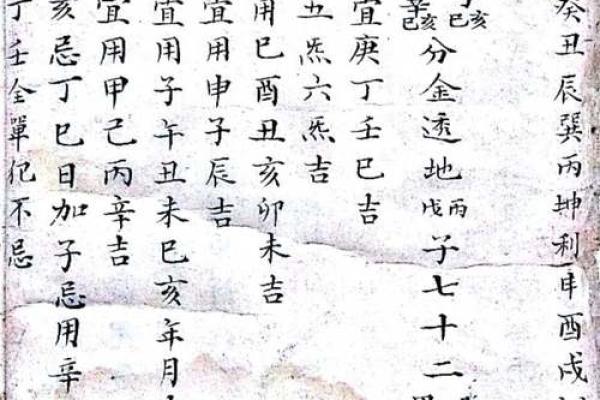 癸丑辰巽丙坤利酉戌
巳亥巳亥分金透地戊丙子七十二
宜庚丁壬巳吉
丑炁六炁吉
用巳酉丑亥卯未吉
宜用申子辰吉
宜用子午丑未巳亥年月
宜用甲己丙辛吉
亥忌丁巳日加子忌用辛
丁壬全單犯不忌